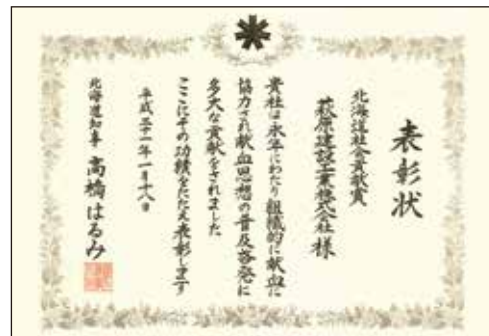 表彰状
北海道社会貢献賞
萩原建設工業株式会社 様
貴社は永年にわたり組織的に献血に
協力され献血思想の普及啓発に
多大な貢献をされました
ここにその功績をたたえ表彰します
平成三十一年一月十八日
北海道知事 高橋はるみ